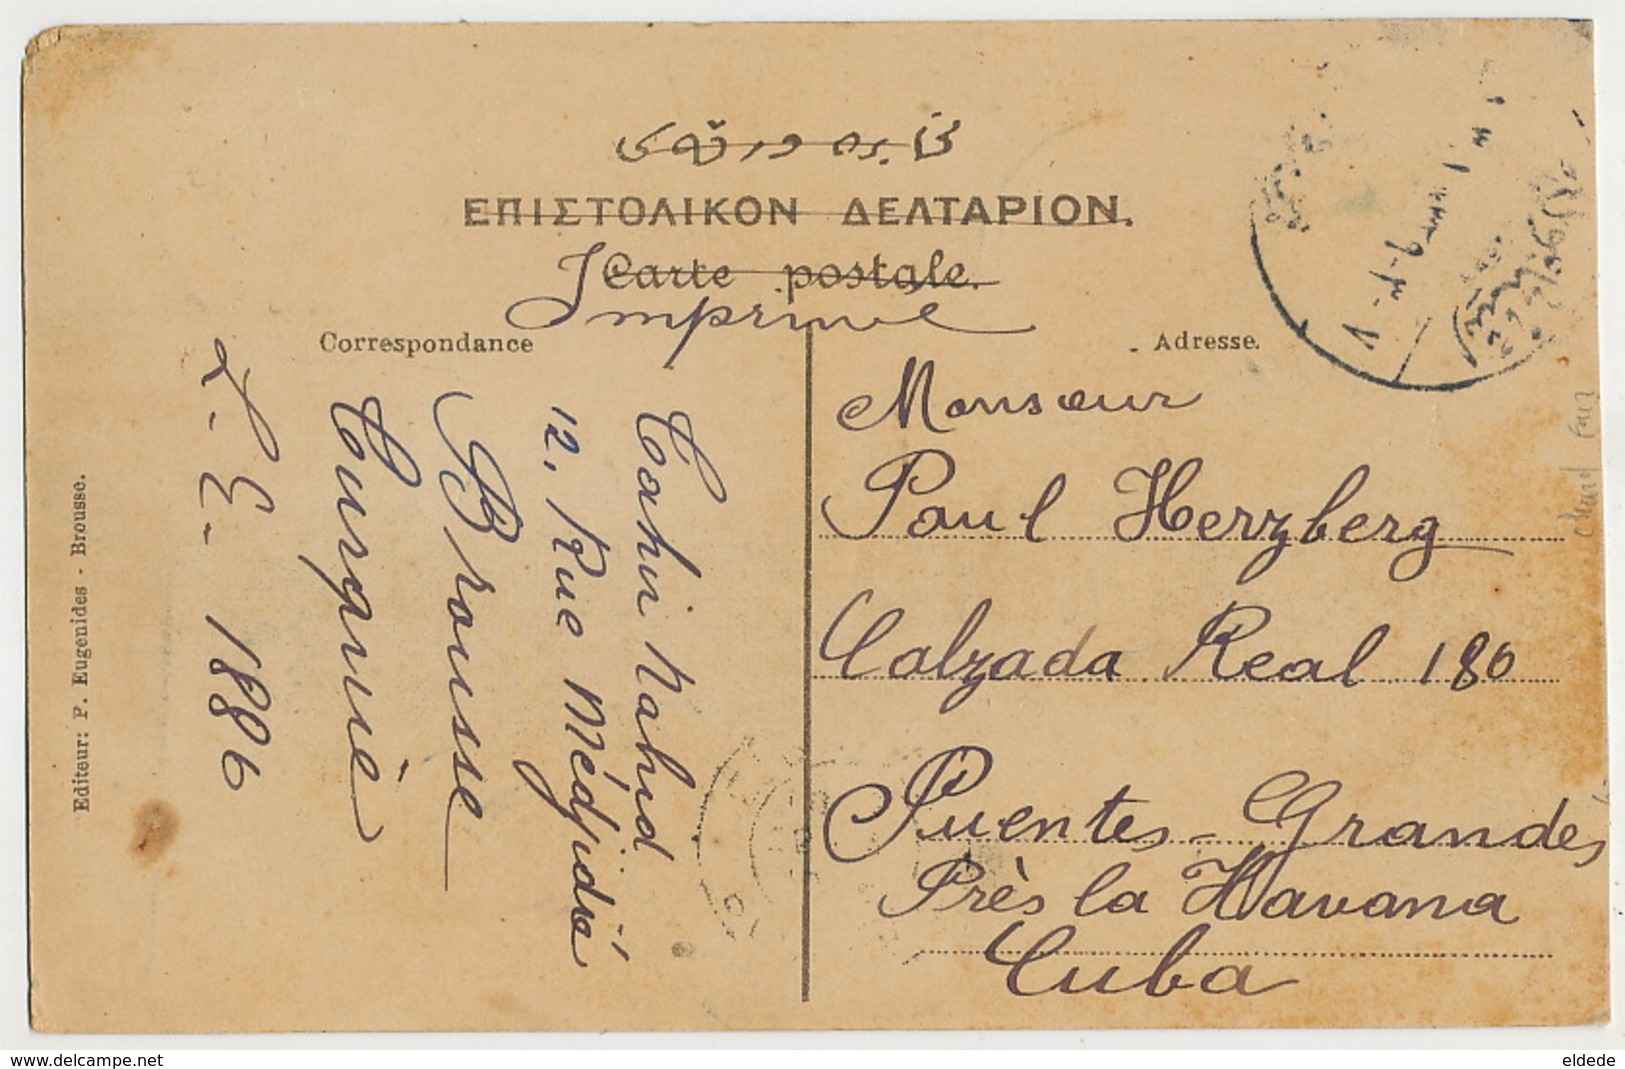 مخابره ورقه‌سی
ΕΠΙΣΤΟΛΙΚΟΝ ΔΕΛΤΑΡΙΟΝ.
Carte postale.
Imprimé
Correspondance
Adresse.
Monsieur
Paul Herzberg
Calzada Real 180
Puentes-Grandes
Près la Havana
Cuba
Nahid
12, Rue Médjidié
Brousse
Turquiè
L.E. 1886
Editeur: P. Eugenides - Brousse.
www.delcampe.net
eldede